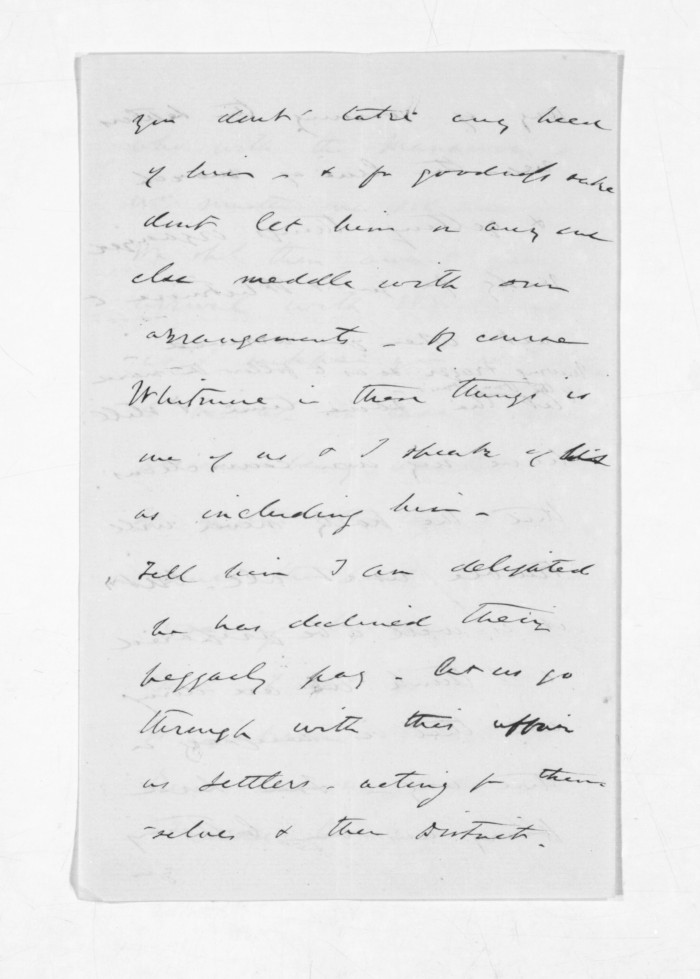 you dont take any heed
of him - & for goodness sake
dont let him or any one
else meddle with our
arrangements - Of course
Whitmore in these things is
one of us & I speak of us
as including him -
Tell him I am delighted
he has declined their
beggarly pay - let us go
through with this affair
as settlers - acting for them
-selves & their District.